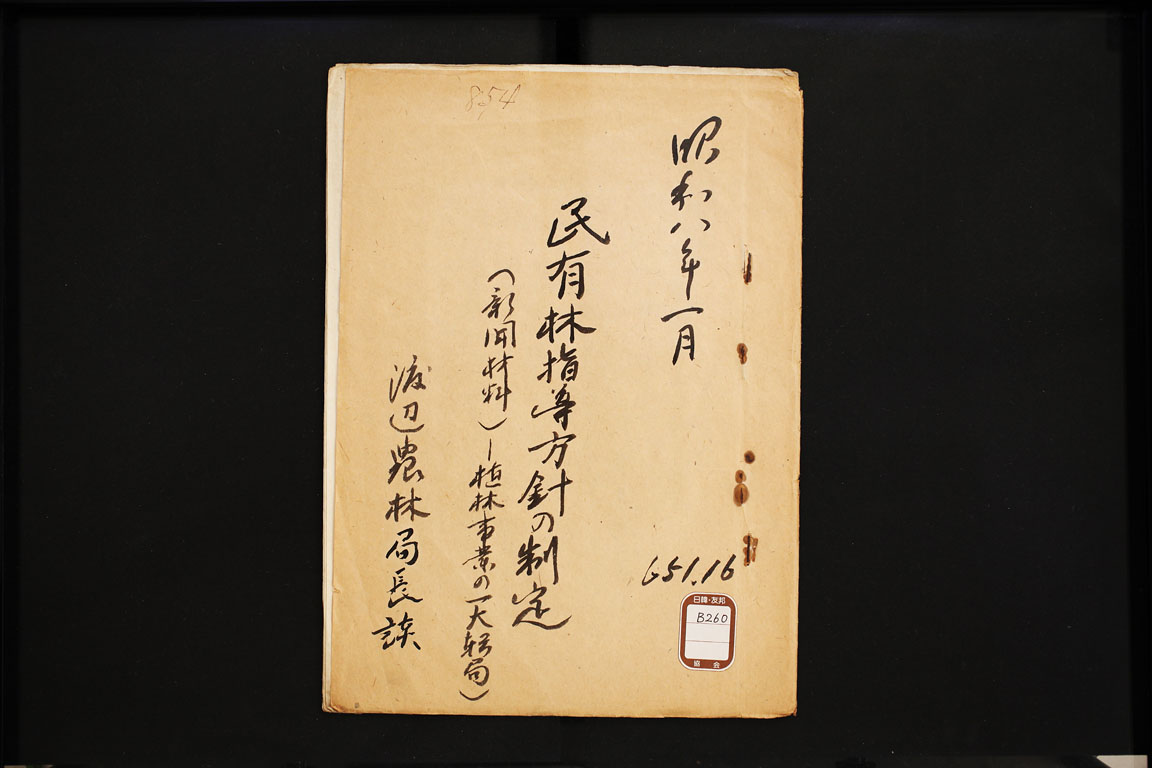 854
昭和八年一月
民有林指導方針の制定
(新聞材料)ー植林事業の一大転局)
渡辺農林局長談
651.16
日韓・友邦
B260
協会